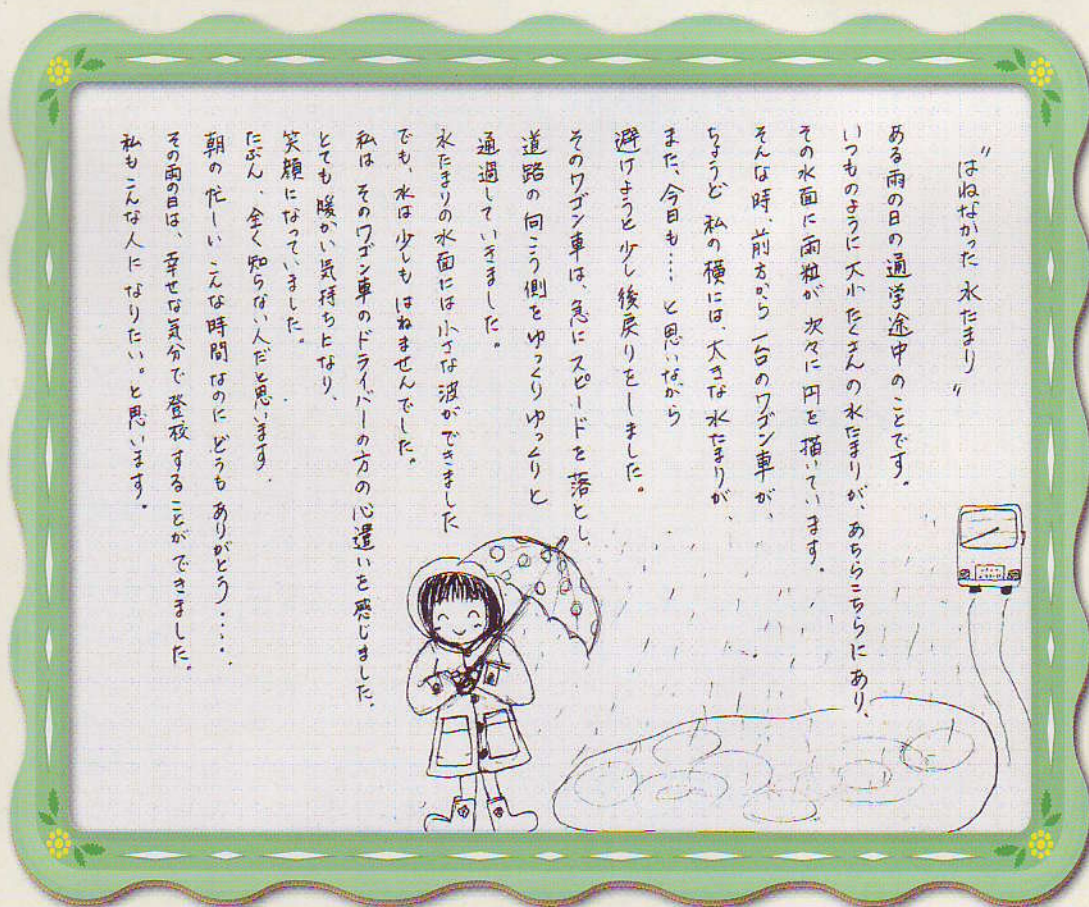 "はねなかった 水たまり"
ある雨の日の通学途中のことです。
いつものように大小たくさんの水たまりが、あちらこちらにあり、
その水面に雨粒が 次々に円を描いています。
そんな時、前方から 一台のワゴン車が、
ちょうど 私の横には、大きな水たまりが、
また、今日も…… と思いながら
避けようと少し後戻りをしました。
そのワゴン車は、急にスピードを落とし、
道路の向こう側をゆっくりゆっくりと
通過していきました。
水たまりの水面には小さな波ができました
でも、水は少しもはねませんでした。
私は そのワゴン車のドライバーの方の心遣いを感じました。
とても暖かい気持ちになり、
笑顔になっていました。
たぶん、全く知らない人だと思います。
朝の忙しいこんな時間なのにどうもありがとう……。
その雨の日は、幸せな気分で登校することができました。
私もこんな人になりたい。と思います。